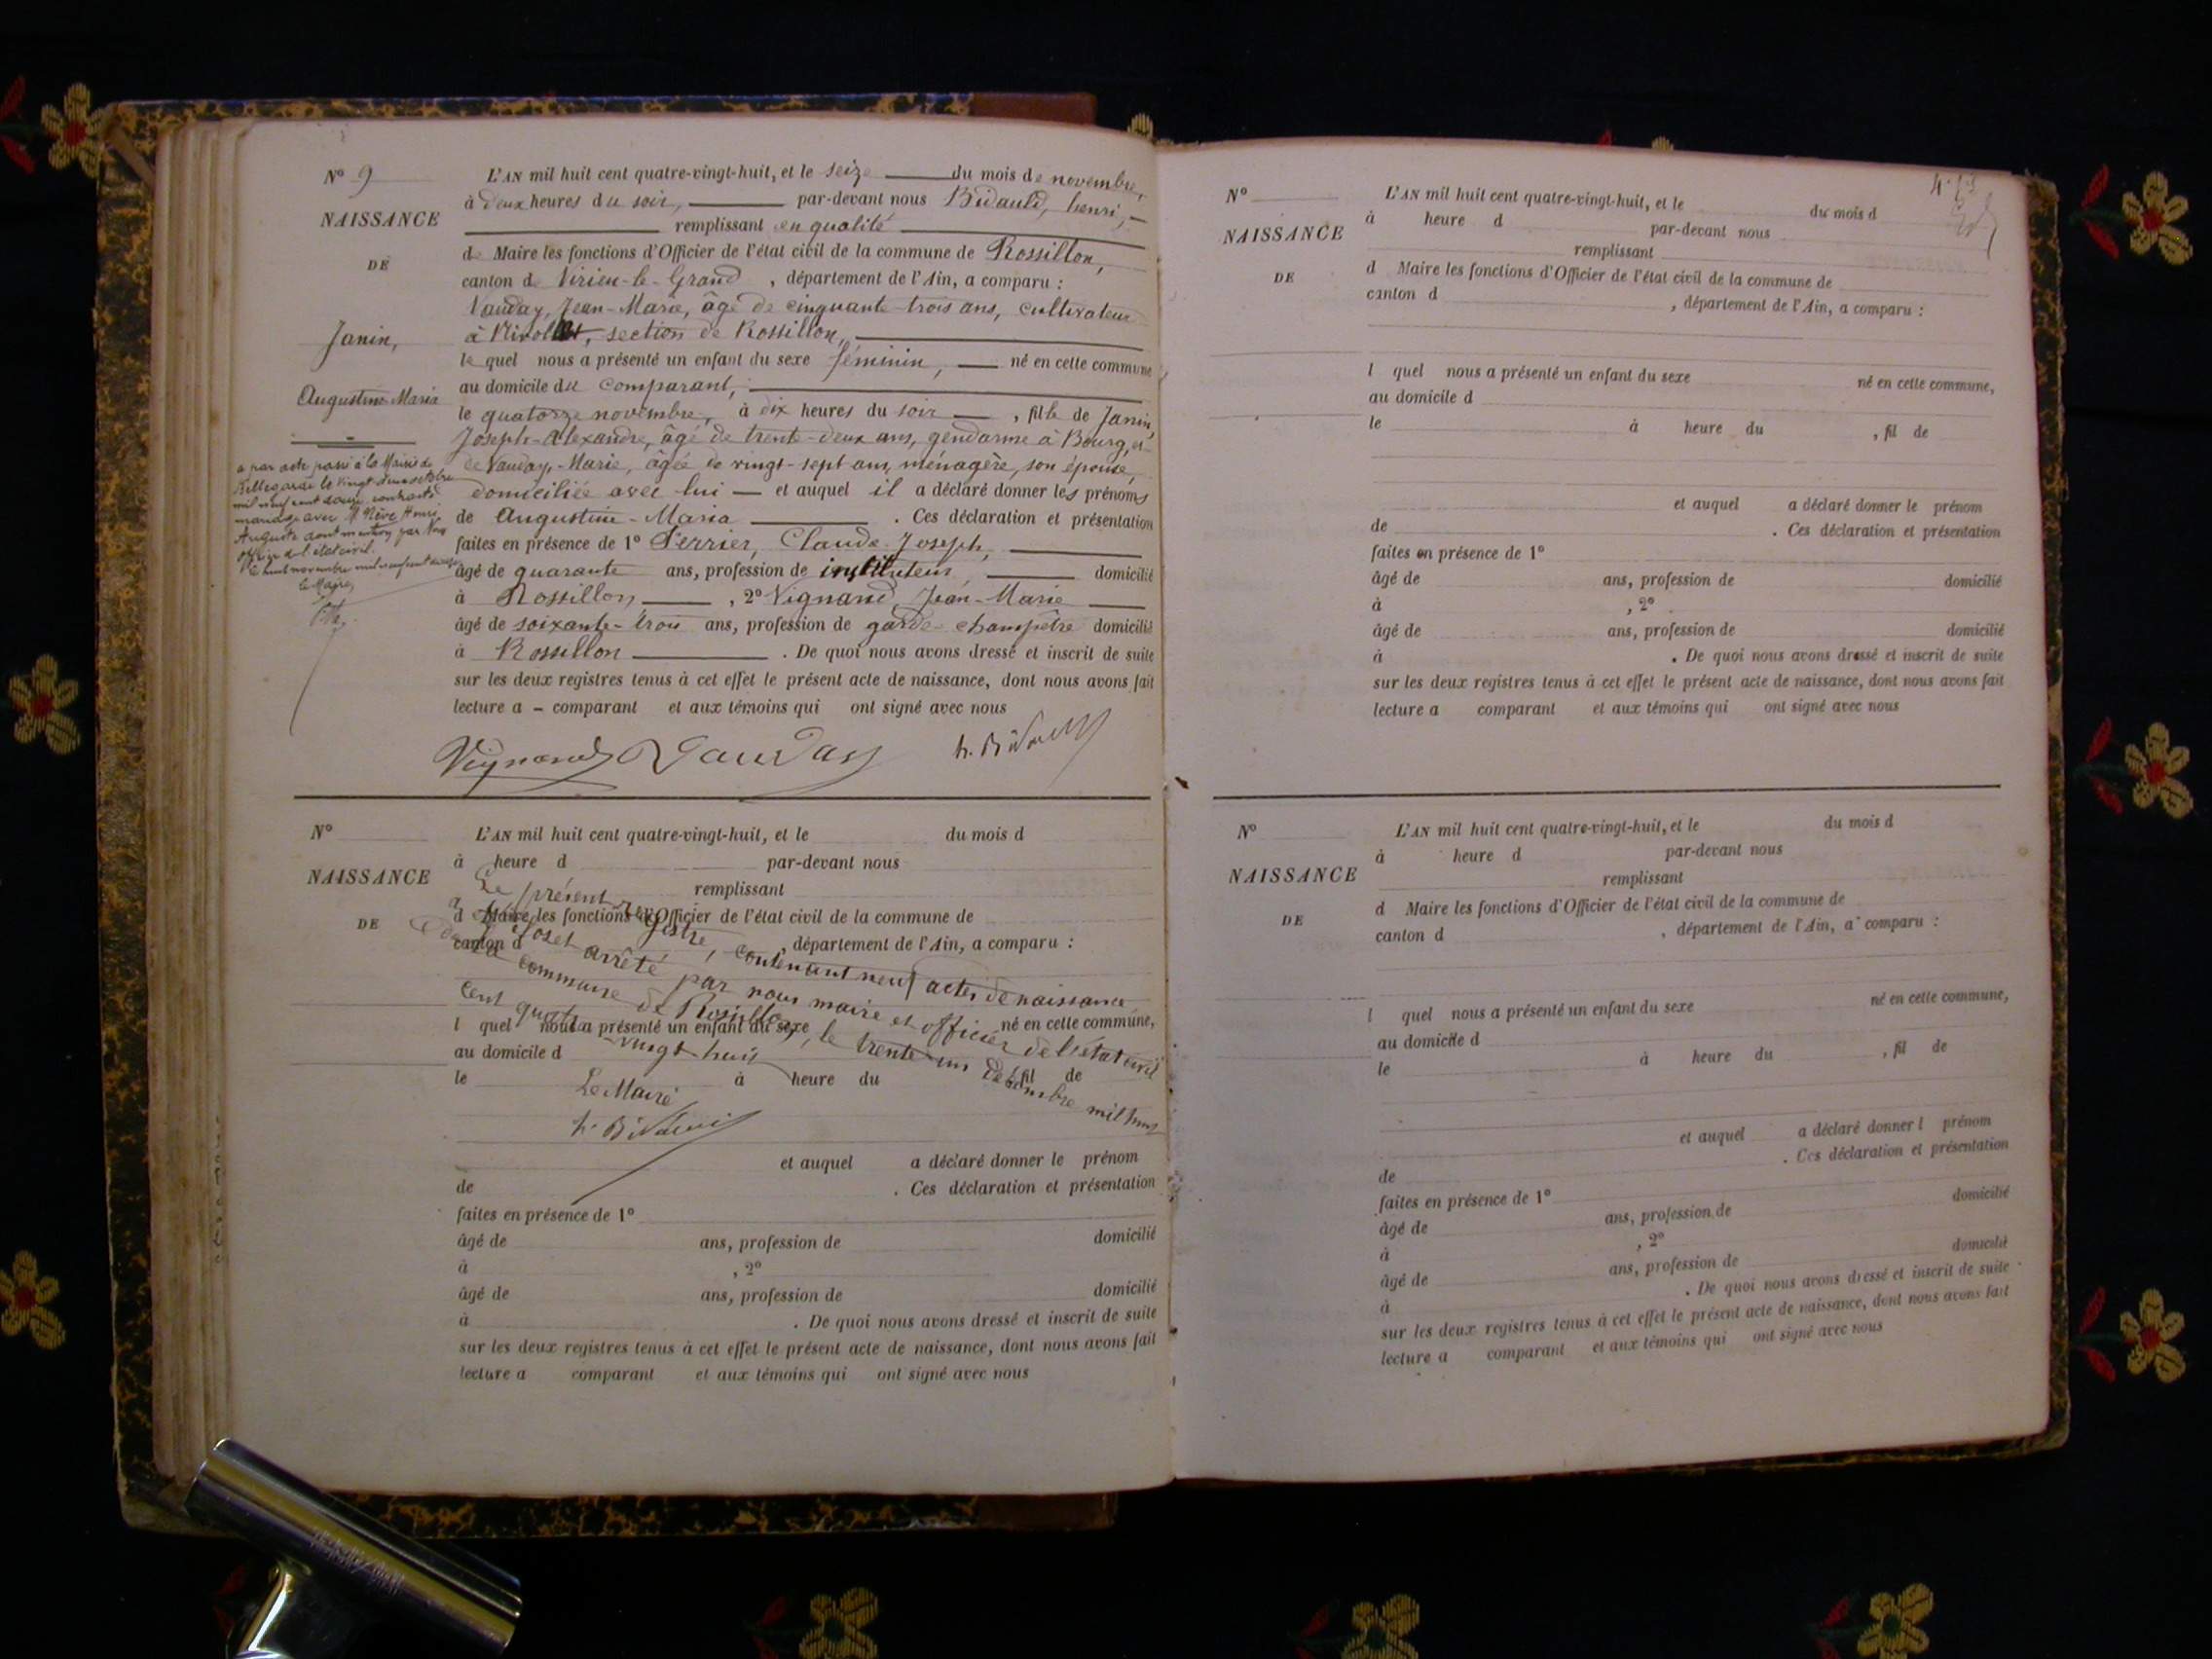 N° 9
NAISSANCE
DE
Janin,
Augustine-Maria
a par acte passé à la Mairie de
Bellegarde le vingt deux octobre
mil neuf cent douze contracté
mariage avec M. Nève Henri
Auguste dont mention par Nous
officier de l'état civil.
le huit novembre mil neuf cent douze
Le Maire,
L'AN mil huit cent quatre-vingt-huit, et le seize du mois de novembre,
à deux heures du soir, par-devant nous Bidauld, henri,
remplissant en qualité
de Maire les fonctions d'Officier de l'état civil de la commune de Rossillon,
canton de Virieu-le-Grand , département de l'Ain, a comparu :
Vauday, Jean-Marie, âgé de cinquante-trois ans, cultivateur
à , section de Rossillon,
le quel nous a présenté un enfant du sexe féminin, né en cette commune
au domicile du comparant,
le quatorze novembre, à dix heures du soir , fille de Janin,
Joseph-Alexandre, âgé de trente-deux ans, gendarme à Bourg, et
de Vauday, Marie, âgée de vingt-sept ans, ménagère, son épouse,
domiciliée avec lui — et auquel il a déclaré donner les prénoms
de Augustine-Maria . Ces déclaration et présentation
faites en présence de 1° Perrier, Claude-Joseph,
âgé de quarante ans, profession de instituteur, domicilié
à Rossillon , 2° Vignand, Jean-Marie
âgé de soixante-trois ans, profession de garde-champêtre domicilié
à Rossillon . De quoi nous avons dressé et inscrit de suite
sur les deux registres tenus à cet effet le présent acte de naissance, dont nous avons fait
lecture a - comparant et aux témoins qui ont signé avec nous
Vignand Vauday h. Bidauld
N°
NAISSANCE
DE
L'AN mil huit cent quatre-vingt-huit, et le du mois d
à heure d par-devant nous
remplissant
d Maire les fonctions d'Officier de l'état civil de la commune de
canton d , département de l'Ain, a comparu :
l quel nous a présenté un enfant du sexe né en cette commune,
au domicile d
le à heure du , fil de
Le présent registre, contenant neuf actes de naissance
a été clos et arrêté par nous maire et officier de l'état civil
de la commune de Rossillon, le trente-un décembre mil huit
cent quatre-vingt-huit
Le Maire
h. Bidauld
et auquel a déclaré donner le prénom
de . Ces déclaration et présentation
faites en présence de 1°
âgé de ans, profession de domicilié
à , 2°
âgé de ans, profession de domicilié
à . De quoi nous avons dressé et inscrit de suite
sur les deux registres tenus à cet effet le présent acte de naissance, dont nous avons fait
lecture a comparant et aux témoins qui ont signé avec nous
N°
NAISSANCE
DE
L'AN mil huit cent quatre-vingt-huit, et le du mois d
à heure d par-devant nous
remplissant
d Maire les fonctions d'Officier de l'état civil de la commune de
canton d , département de l'Ain, a comparu :
l quel nous a présenté un enfant du sexe né en cette commune,
au domicile d
le à heure du , fil de
et auquel a déclaré donner le prénom
de . Ces déclaration et présentation
faites en présence de 1°
âgé de ans, profession de domicilié
à , 2°
âgé de ans, profession de domicilié
à . De quoi nous avons dressé et inscrit de suite
sur les deux registres tenus à cet effet le présent acte de naissance, dont nous avons fait
lecture a comparant et aux témoins qui ont signé avec nous
N°
NAISSANCE
DE
L'AN mil huit cent quatre-vingt-huit, et le du mois d
à heure d par-devant nous
remplissant
d Maire les fonctions d'Officier de l'état civil de la commune de
canton d , département de l'Ain, a comparu :
l quel nous a présenté un enfant du sexe né en cette commune,
au domicile d
le à heure du , fil de
et auquel a déclaré donner l prénom
de . Ces déclaration et présentation
faites en présence de 1°
âgé de ans, profession de domicilié
à , 2°
âgé de ans, profession de domicilié
à . De quoi nous avons dressé et inscrit de suite
sur les deux registres tenus à cet effet le présent acte de naissance, dont nous avons fait
lecture a comparant et aux témoins qui ont signé avec nous